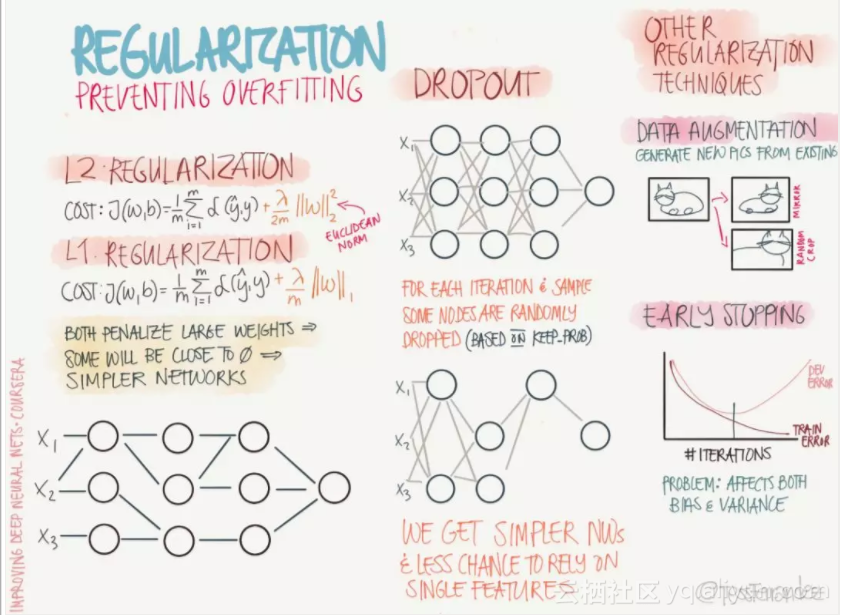 REGULARIZATION
PREVENTING OVERFITTING
L2·REGULARIZATION
COST: J(w,b)=1/m Σ_{i=1}^{m} L(ŷ,y)+ λ/2m ||w||₂²
EUCLIDEAN
NORM
L1·REGULARIZATION
COST: J(w,b)=1/m Σ_{i=1}^{m} L(ŷ,y)+ λ/m ||w||₁
BOTH PENALIZE LARGE WEIGHTS ⇒
SOME WILL BE CLOSE TO Ø ⇒
SIMPLER NETWORKS
X₁
X₂
X₃
IMPROVING DEEP NEURAL NETS·COURSERA
DROPOUT
X₁
X₂
X₃
FOR EACH ITERATION & SAMPLE
SOME NODES ARE RANDOMLY
DROPPED (BASED ON KEEP_PROB)
X₁
X₂
X₃
WE GET SIMPLER NWs
& LESS CHANCE TO RELY ON
SINGLE FEATURES
OTHER
REGULARIZATION
TECHNIQUES
DATA AUGMENTATION
GENERATE NEW PICS FROM EXISTING
MIRROR
RANDOM
CROP
EARLY STOPPING
DEV
ERROR
TRAIN
ERROR
# ITERATIONS
PROBLEM: AFFECTS BOTH
BIAS & VARIANCE